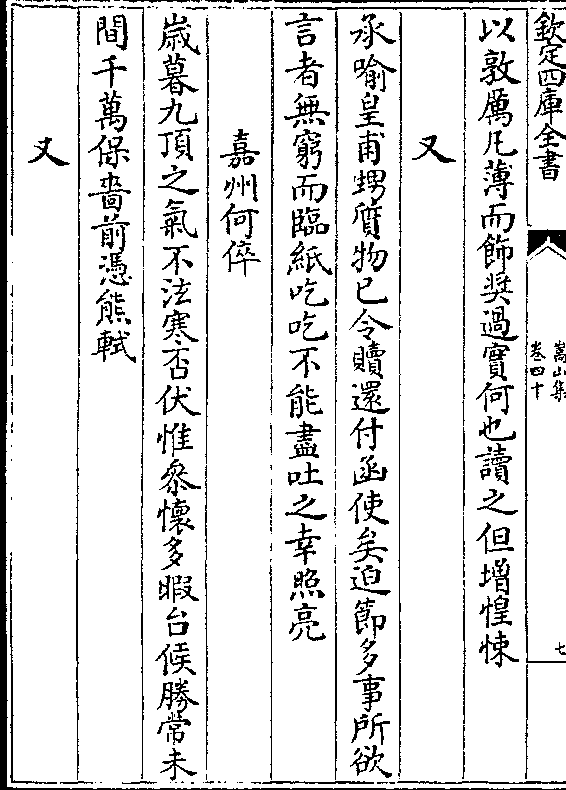 欽定四庫全書
嵩山集
卷四十
七
以敦厲凡薄而飾奨過實何也讀之但增惶悚
又
承喻皇甫甥質物已令贖還付函使矣迫節多事所欲
言者無窮而臨紙吃吃不能盡吐之幸照亮
嘉州何倅
嵗暮九頂之氣不泫寒否伏惟叅懷多暇台候勝常未
間千萬保嗇前憑熊軾
又